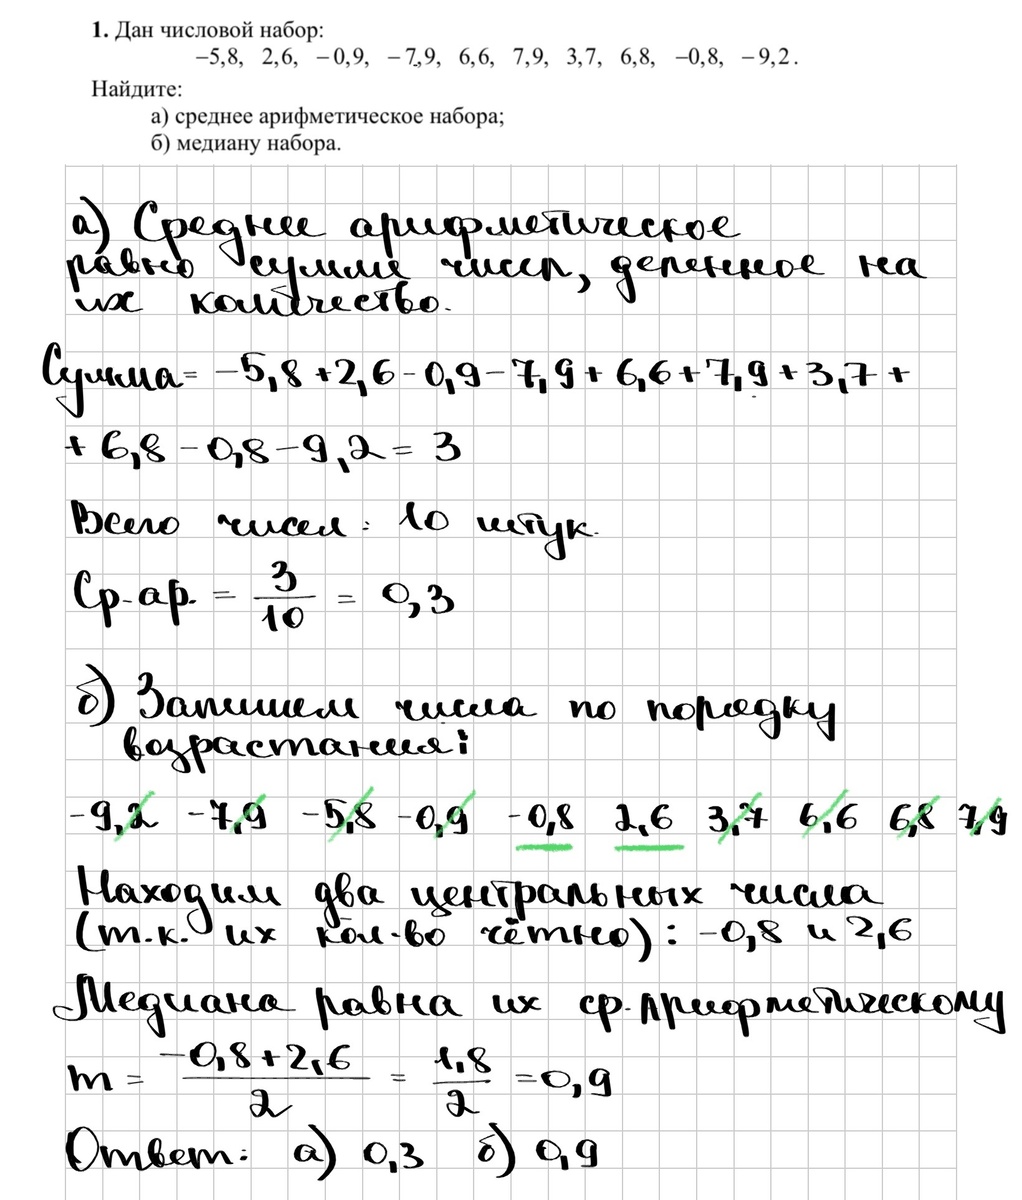 1. Дан числовой набор:
−5,8, 2,6, −0,9, −7,9, 6,6, 7,9, 3,7, 6,8, −0,8, −9,2.
Найдите:
а) среднее арифметическое набора;
б) медиану набора.
а) Среднее арифметическое
равно сумме чисел, деленное на
их количество.
Сумма = -5,8+2,6-0,9-7,9+6,6+7,9+3,7+
+6,8-0,8-9,2= 3
Всего чисел: 10 штук.
Ср.ар. = 3/10 = 0,3
б) Запишем числа по порядку
возрастания:
-9,2 -7,9 -5,8 -0,9 -0,8 2,6 3,7 6,6 6,8 7,9
Находим два центральных числа
(т.к. их кол-во чётно): -0,8 и 2,6
Медиана равна их ср. арифметическому
m = (-0,8+2,6)/2 = 1,8/2 = 0,9
Ответ: а) 0,3 б) 0,9